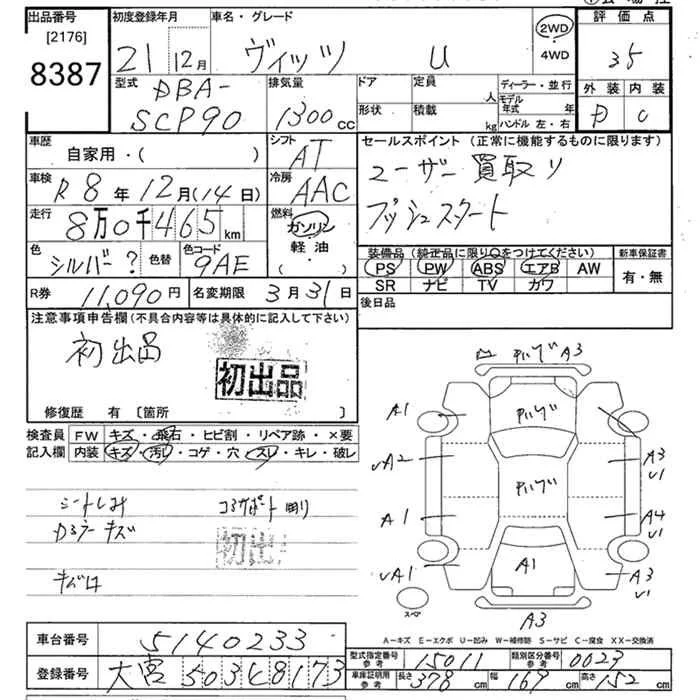 出品番号 初度登録年月 車名・グレード 2WD 評価点
[2176] 21年12月 ヴィッツ U 4WD 35
8387
型式 DBA-SCP90 排気量 1300cc ドア 定員 人 ディーラー・並行 外装 内装
形状 積載 kg モデル年式 年 ハンドル 左・右 D C
車歴 自家用・( ) シフト AT セールスポイント (正常に機能するものに限ります)
車検 R8年12月(14日) 冷房 AAC ユーザー買取り
走行 8万0千465km 燃料 ガソリン プッシュスタート
軽油
・( )
色 シルバー? 色替 色コード 9AE 装備品 (純正品に限り○をつけてください) 新車保証書
PS PW ABS エアB AW 有・無
SR ナビ TV カワ
R券 11,090円 名変期限 3月31日 後日品
注意事項申告欄(不具合内容等は具体的に記入して下さい)
初出品
初出品
修復歴 有 〔箇所 〕
検査員 FW キズ・飛石・ヒビ割・リペア跡・×要
記入欄 内装 キズ・汚レ・コゲ・穴・スレ・キレ・破レ
シートしみ
キズ
初出
A3
A1
UA2 A3
U1
A1 A4
U1
UA1 A1 A3
U1
スペア A3
A-キズ E-エクボ U-凹み W-補修跡 S-サビ C-腐食 XX-交換済
車台番号 5140233
登録番号 大宮 503 8173
型式指定番号 参考 15011 類別区分番号 参考 0023
車庫証明用 参考 長さ 378cm 幅 169cm 高さ 152cm